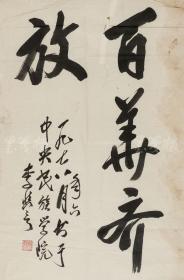 百華齐
放
一九七八年六月书于
中央民族学院
李